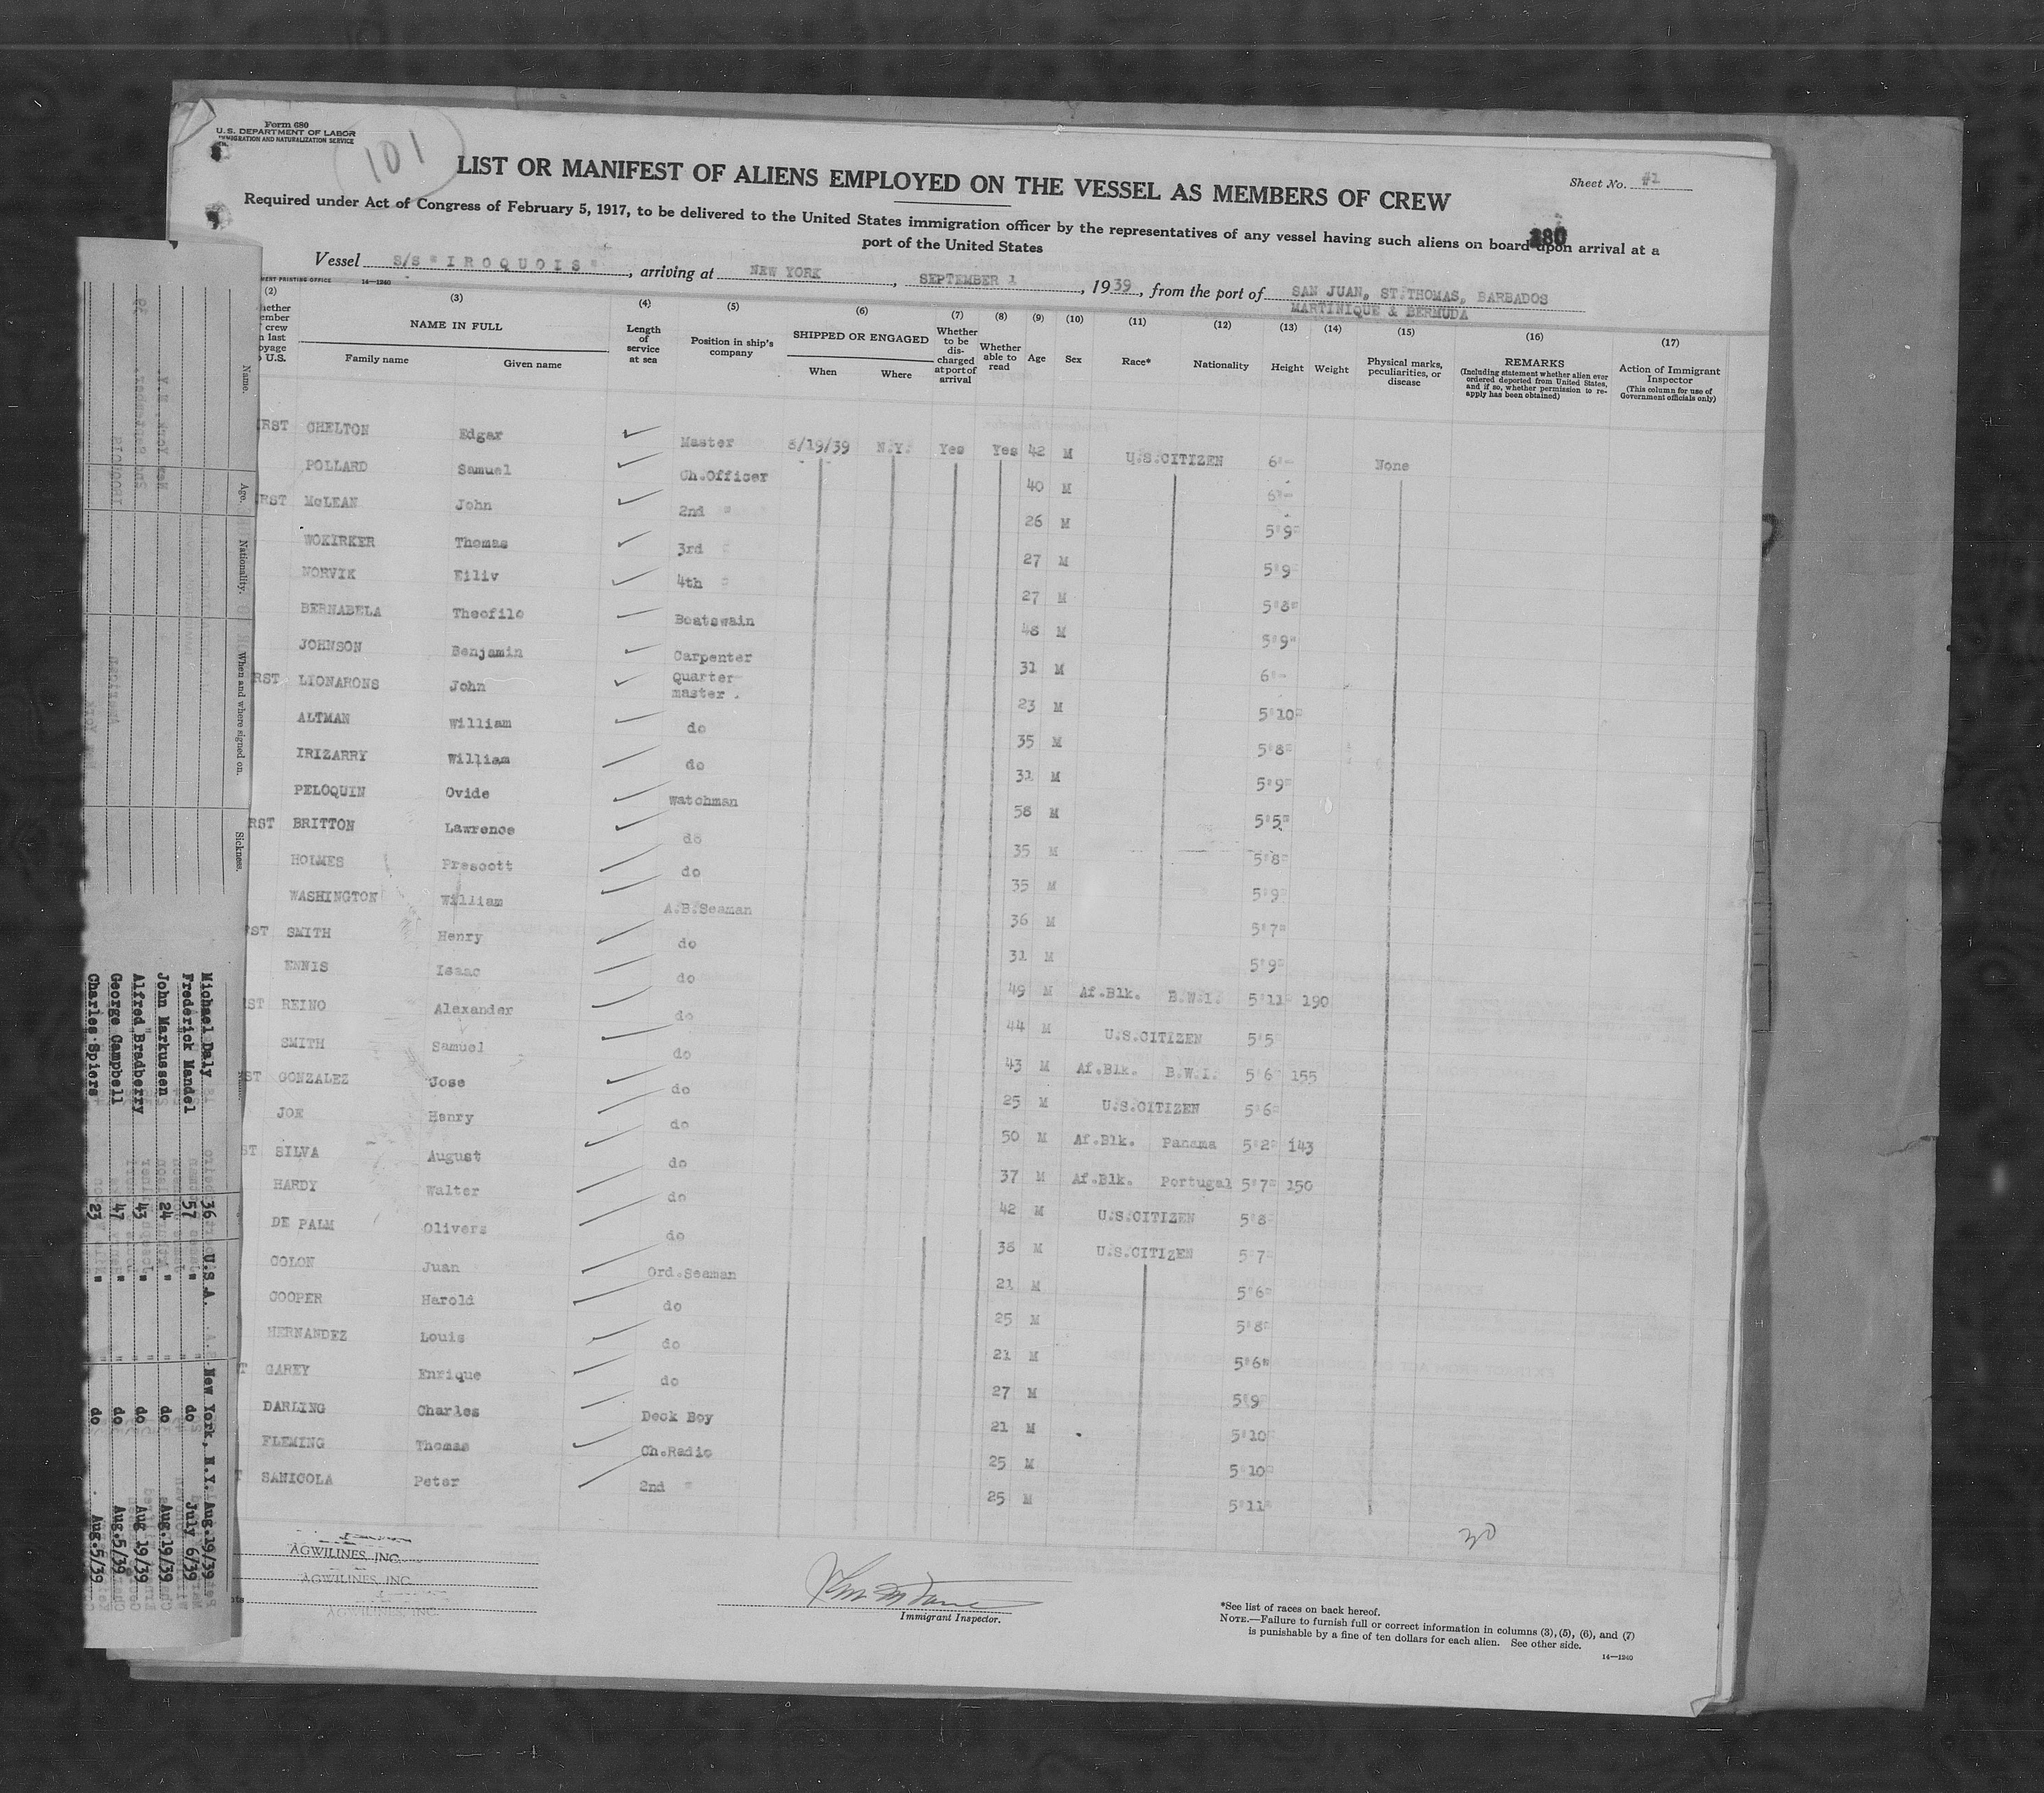 Form 680
U.S. DEPARTMENT OF LABOR
IMMIGRATION AND NATURALIZATION SERVICE
101
LIST OR MANIFEST OF ALIENS EMPLOYED ON THE VESSEL AS MEMBERS OF CREW
Sheet No. #1
Required under Act of Congress of February 5, 1917, to be delivered to the United States immigration officer by the representatives of any vessel having such aliens on board upon arrival at a
port of the United States
Vessel S/S "IROQUOIS", arriving at NEW YORK, SEPTEMBER 1, 1939, from the port of SAN JUAN, ST.THOMAS, BARBADOS
MARTINIQUE & BERMUDA
14—1240
(2) (3) (4) (5) (6) (7) (8) (9) (10) (11) (12) (13) (14) (15) (16) (17)
NAME IN FULL
Family name Given name
Length of service at sea
Position in ship's company
SHIPPED OR ENGAGED
When Where
Whether to be discharged at port of arrival
Whether able to read
Age Sex Race* Nationality Height Weight
Physical marks, peculiarities, or disease
REMARKS
(Including statement whether alien ever ordered deported from United States, and if so, whether permission to reapply has been obtained)
Action of Immigrant Inspector
(This column for use of Government officials only)
RST CHELTON Edgar Master 8/19/39 N.Y. Yes Yes 42 M U.S.CITIZEN 6'- None
POLLARD Samuel Ch.Officer 40 M 6'-
RST McLEAN John 2nd " 26 M 5'9"
WOKIRKER Thomas 3rd " 27 M 5'9
NORVIK Eiliv 4th " 27 M 5'8"
BERNABELA Theofilo Boatswain 48 M 5'9"
JOHNSON Benjamin Carpenter 31 M 6'-
RST LIONARONS John Quarter-master. 23 M 5'10"
ALTMAN William do 35 M 5'8"
IRIZARRY William do 31 M 5'9"
PELOQUIN Ovide Watchman 58 M 5'5"
RST BRITTON Lawrence do 35 M 5'8"
HOLMES Prescott do 35 M 5'9
WASHINGTON William A.B.Seaman 36 M 5'7"
ST SMITH Henry do 31 M 5'9"
ENNIS Isaac do 49 M Af.Blk. B.W.I. 5'11" 190
ST REINO Alexander do 44 M U.S.CITIZEN 5'5
SMITH Samuel do 43 M Af.Blk. B.W.I. 5'6" 155
ST GONZALEZ Jose do 25 M U.S.CITIZEN 5'6"
JOE Henry do 50 M Af.Blk. Panama 5'2" 143
ST SILVA August do 37 M Af.Blk. Portugal 5'7" 150
HARDY Walter do 42 M U.S.CITIZEN 5'8
DE PALM Olivers do 38 M U.S.CITIZEN 5'7"
COLON Juan Ord.Seaman 21 M 5'6"
COOPER Harold do 25 M 5'8"
HERNANDEZ Louis do 21 M 5'6"
T GAREY Enrique do 27 M 5'9
DARLING Charles Deck Boy 21 M 5'10
FLEMING Thomas Ch.Radio 25 M 5'10"
T SANICOLA Peter 2nd " 25 M 5'11"
30
AGWILINES, INC.
AGWILINES, INC.
AGWILINES, INC.
Immigrant Inspector.
*See list of races on back hereof.
NOTE.—Failure to furnish full or correct information in columns (3), (5), (6), and (7)
is punishable by a fine of ten dollars for each alien. See other side.
14—1240
Name. Age. Nationality. When and where signed on. Sickness.
Michael Daly 36 U.S.A. New York, N.Y. Aug.19/39
Frederick Mandel 57 " " do July 6/39
John Markussen 24 " " do Aug.19/39
Alfred Bradberry 43 " " do Aug 19/39
George Campbell 47 " " do Aug.5/39
Charles Spiers 23 " " do Aug.5/39